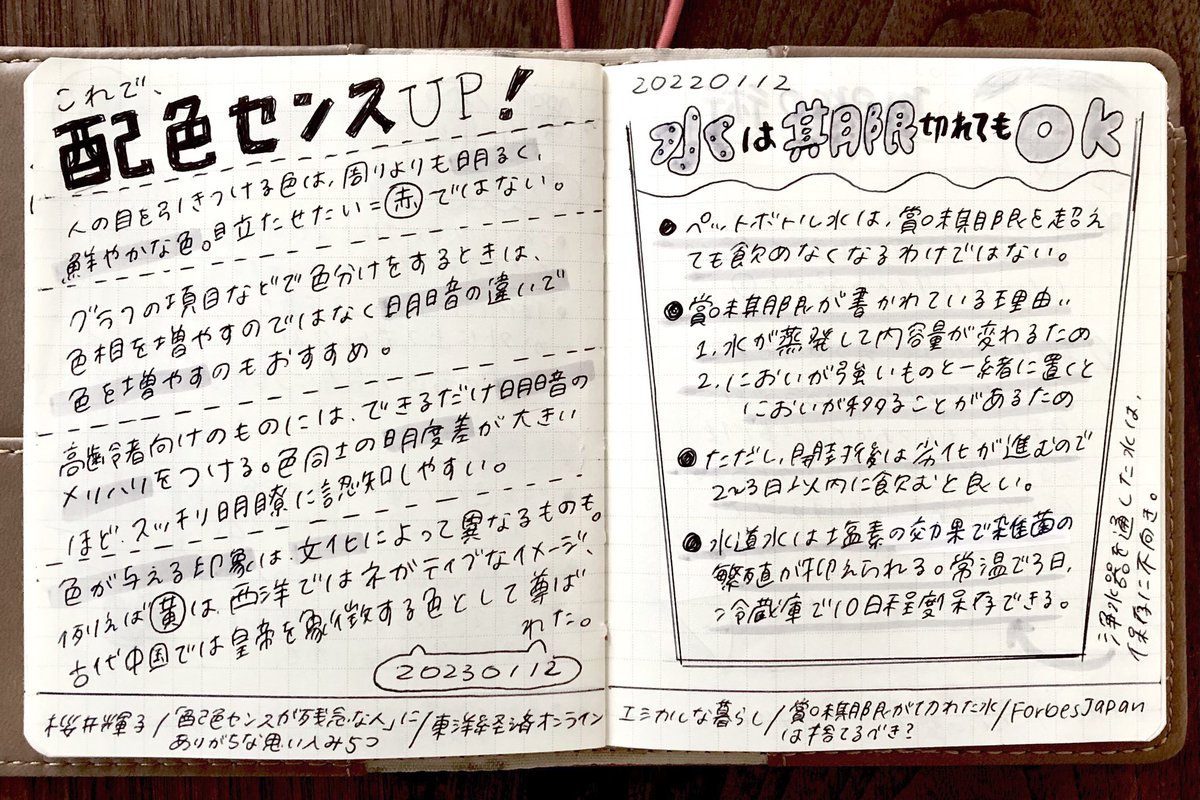 これで、
配色センスUP!
人の目を引きつける色は、周りよりも明るく、
鮮やかな色。目立たせたい=赤ではない。
グラフの項目などで色分けをするときは、
色相を増やすのではなく明暗の違いで
色を増やすのもおすすめ。
高齢者向けのものには、できるだけ明暗の
メリハリをつける。色同士の明度差が大きい
ほど、スッキリ明瞭に認知しやすい。
色が与える印象は、文化によって異なるものも。
例えば黄は、西洋ではネガティブなイメージ、
古代中国では皇帝を象徴する色として尊ば
れた。
20230112
桜井輝子/「配色センスが残念な人」に/東洋経済オンライン
ありがちな思い込み5つ
20220112
水は期限切れてもOK
●ペットボトル水は、賞味期限を超え
ても飲めなくなるわけではない。
●賞味期限が書かれている理由‥
1.水が蒸発して内容量が変わるため
2.においが強いものと一緒に置くと
においが移ることがあるため
●ただし、開封後は劣化が進むので
2~3日以内に飲むと良い。
●水道水は塩素の効果で雑菌の
繁殖が抑えられる。常温で3日、
冷蔵庫で10日程度保存できる。
浄水器を通した水は、
保存に不向き。
エシカルな暮らし/賞味期限が切れた水/Forbes Japan
は捨てるべき?